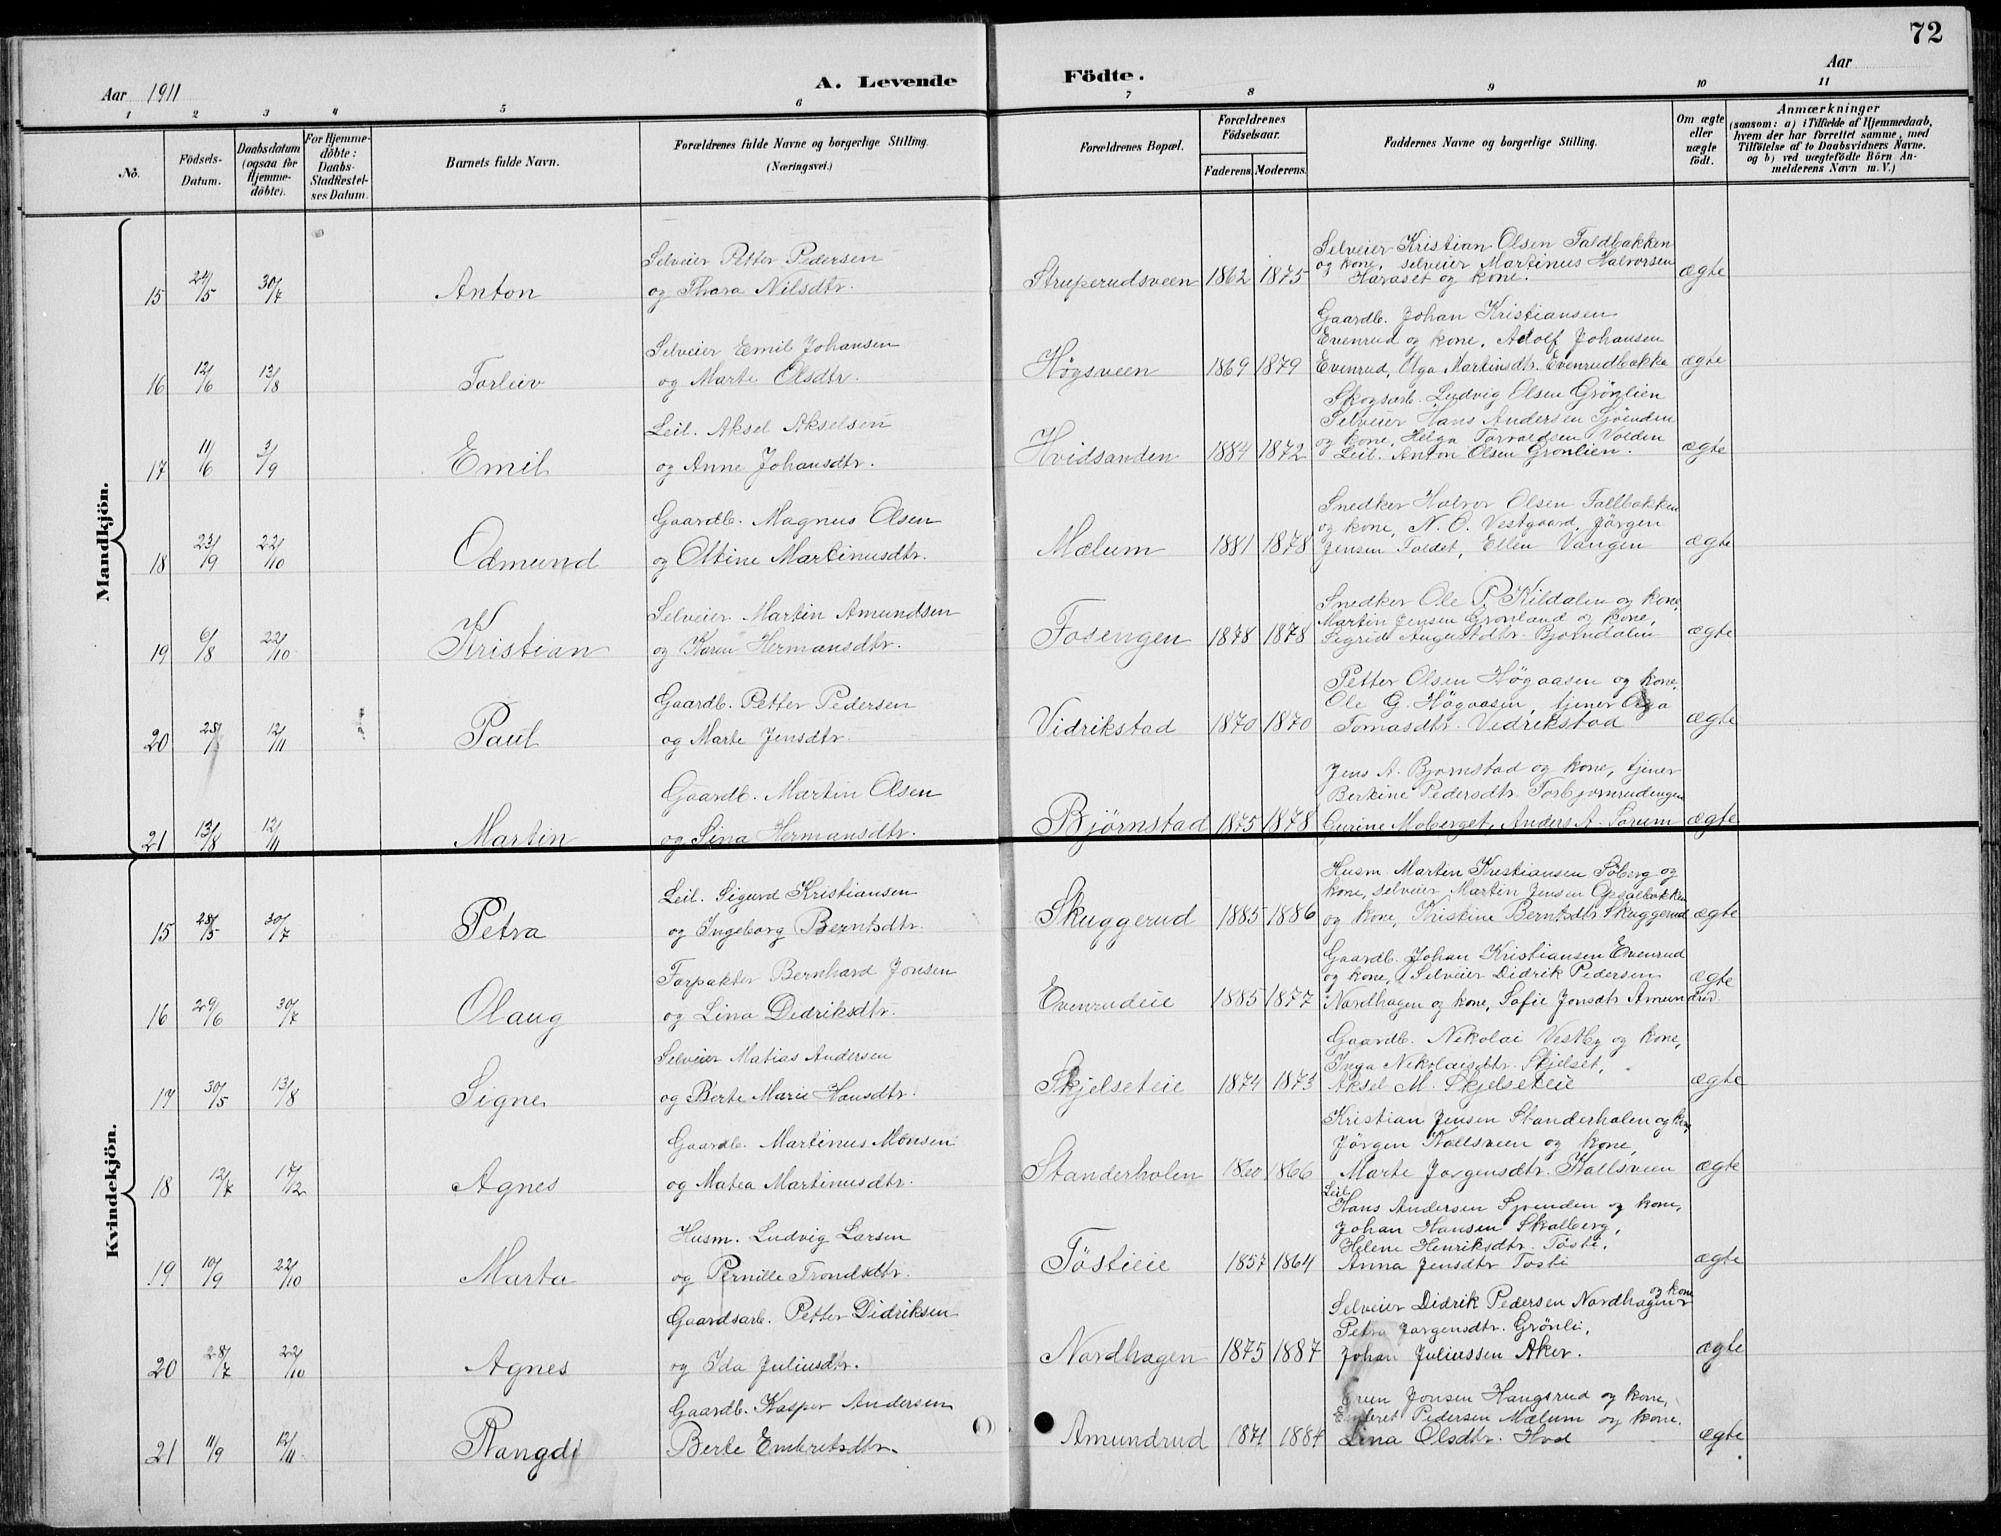 72
Aar 1911
A. Levende Födte.
Aar
1 2 3 4 5 6 7 8 9 10 11
No.
Födsels-Datum.
Daabsdatum (ogsaa for Hjemme-döbte).
For Hjemme-döbte: Daabs-Stadfæstel-ses Datum.
Barnets fulde Navn.
Forældrenes fulde Navne og borgerlige Stilling.
(Næringsvei.)
Forældrenes Bopæl.
Forældrenes Födselsaar.
Faderens. Moderens.
Faddernes Navne og borgerlige Stilling.
Om ægte eller uægte födt.
Anmærkninger
(saasom: a) i Tilfælde af Hjemmedaab, hvem der har forrettet samme, med Tilföielse af to Daabsvidners Navne. og b) ved uægtefödte Börn An-melderens Navn m. V.)
Mandkjön.
15 24/5 30/7 Anton
Selveier Petter Pedersen
og Thara Nilsdtr.
Struperudsveen 1862 1875
Selveier Kristian Olsen Faldbakken
og kone, selveier Martinus Halvorsen
Haraset og kone.
ægte
16 12/6 13/8 Torleiv
Selveier Emil Johansen
og Marte Olsdtr.
Høgsveen 1869 1879
Gaardb. Johan Kristiansen
Evenrud og kone, Adolf Johansen
Evenrud, Olga Martinsdtr. Evenrudbakke
ægte
17 11/6 3/9 Emil
Leil. Aksel Akselsen
og Anne Johansdtr.
Hvidsanden 1884 1872
Skogsarb. Ludvig Olsen Grönlien
Selveier Hans Andersen Sjöenden
og kone, Helga Torvaldsen Volden
Leil. Anton Olsen Grönlien.
ægte
18 23/9 22/10 Odmund
Gaardb. Magnus Olsen
og Oltine Martinusdtr.
Mælum 1881 1878
Snedker Halvor Olsen Fallbakken
og kone, N. O. Vestgaard, Jörgen
Jensen Faldet, Ellen Vangen
ægte
19 6/8 22/10 Kristian
Selveier Martin Amundsen
og Karen Hermansdtr.
Fosengen 1878 1878
Snedker Ole P. Kildalen og kone,
Martin Jensen Grönland og kone,
Sigrid Augustdtr. Bjorndalen
ægte
20 28/ 12/11 Paul
Gaardb. Petter Pedersen
og Marte Jensdtr.
Vidrikstad 1870 1870
Petter Olsen Høgaasen og kone,
Ole G. Høgaasen, tjener Olga
Tomasdtr. Vidrikstad
ægte
21 13/8 12/11 Martin
Gaardb. Martin Olsen
og Lina Hermansdtr.
Björnstad 1875 1878
Jens A. Bjornstad og kone, tjener
Bertine Pedersdtr. Torbjornrudengen
Gurine Moberget, Anders A. Sorum
ægte
Kvindekjön.
15 28/5 30/7 Petra
Leil. Sigurd Kristiansen
og Ingeborg Berntsdtr.
Skuggerud 1885 1886
Husm. Martin Kristiansen Söberg og
kone, selveier Martin Jensen Opsalbakken
og kone, Kristine Berntsdtr. Skuggerud
ægte
16 29/6 30/7 Olaug
Forpakter Bernhard Jonsen
og Lina Didriksdtr.
Evenrudeie 1885 1877
Gaardb. Johan Kristiansen Evenrud
og kone, Selveier Didrik Pedersen
Nordhagen og kone, Sofie Jonsdtr Amundrud.
ægte
17 30/5 13/8 Signe
Selveier Matias Andersen
og Berte Marie Hansdtr.
Skjelseteie 1874 1873
Gaardb. Nikolai Vestby og kone,
Inga Nikolaisdtr. Skjelset,
Aksel M. Skjelseteie
ægte
18 12/7 17/12 Agnes
Gaardb. Martinus Monsen
og Matea Martinusdtr.
Standerholen 1860 1866
Kristian Jensen Standerholen og kone,
Jörgen Kollsveen og kone,
Marte Jorgensdtr. Kollsveen
ægte
19 10/9 22/10 Marta
Husm. Ludvig Larsen
og Pernille Trondsdtr.
Töstieie 1857 1864
Leil.
Hans Andersen Sjoenden og kone,
Johan Hansen Skolberg,
Helene Henriksdtr. Tösti,
Anna Jensdtr Tosti
ægte
20 28/7 22/10 Agnes
Gaardsarb. Petter Didriksen
og Ida Juliusdtr.
Nordhagen 1875 1887
Selveier Didrik Pedersen Nordhagen og kone
Petra Jorgensdtr. Grönli,
Johan Juliussen Aker.
ægte
21 11/9 12/11 Rangdi
Gaardb. Kasper Andersen
Berte Embretsdtr.
Amundrud 1871 1884
Even Jonsen Hangsrud og kone,
Embret Pedersen Mælum og kone.
Lina Olsdtr. Hvd
ægte